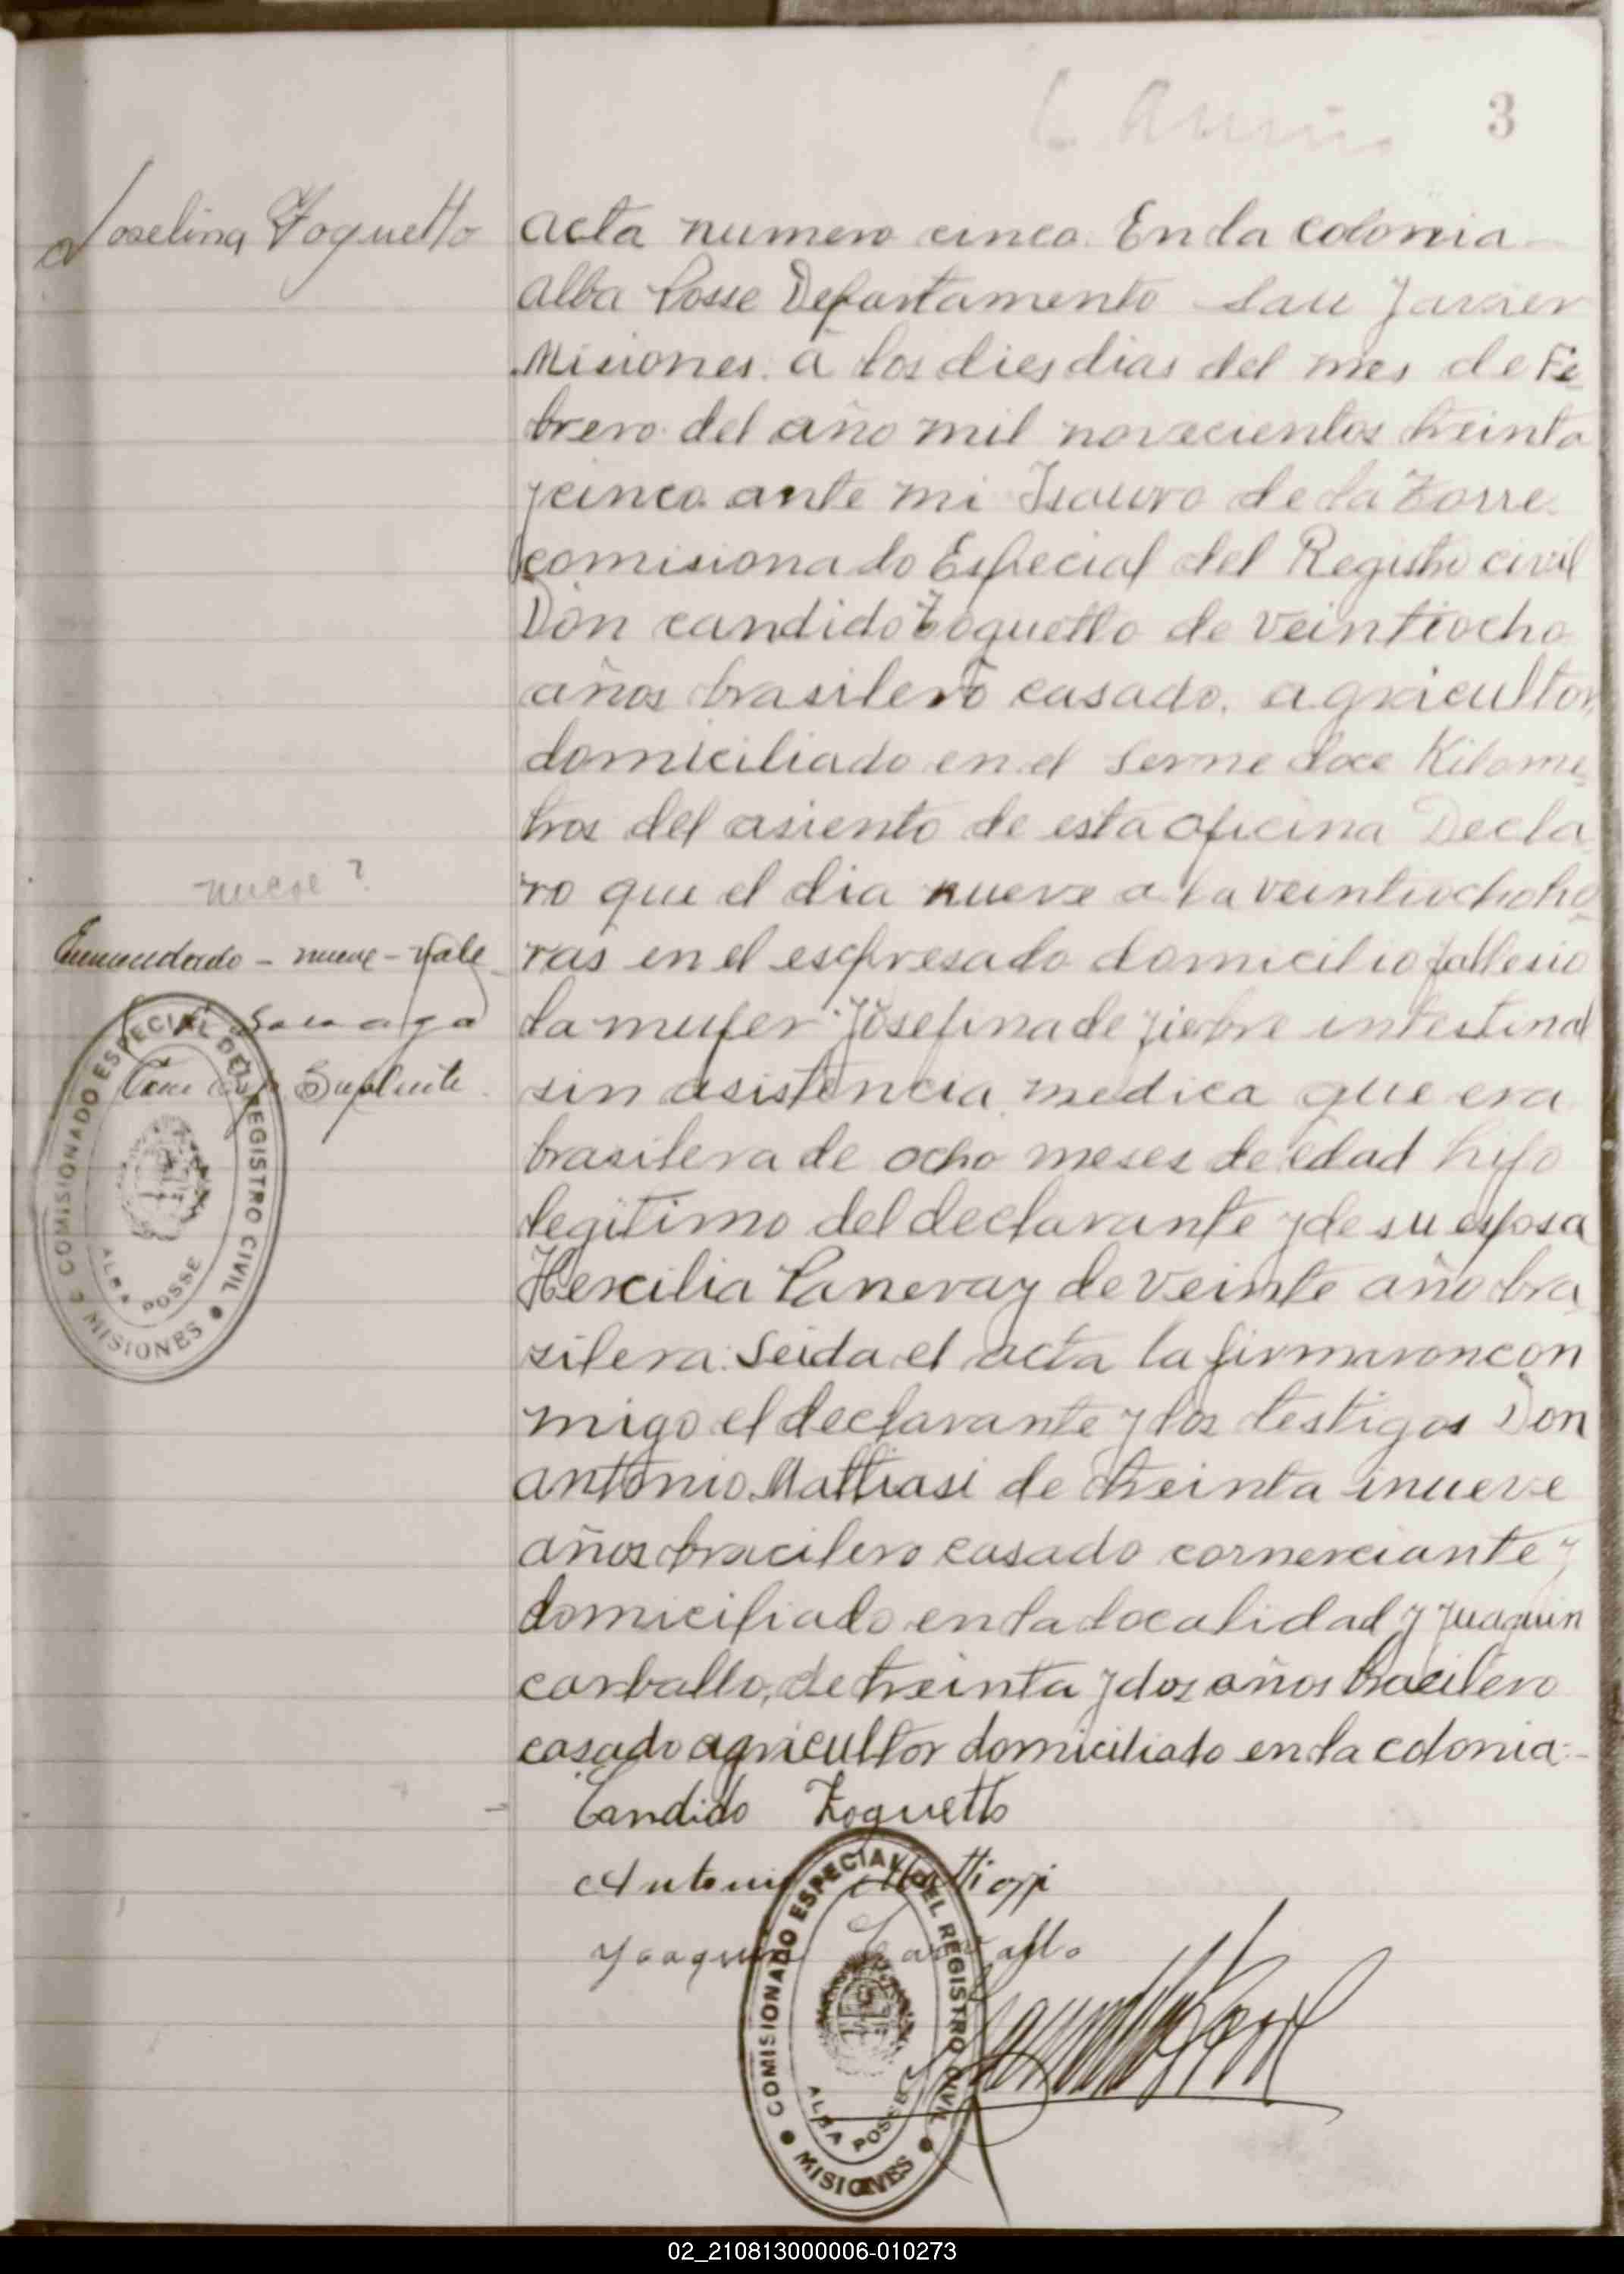 3
Joselina Foquetto
acta numero cinco. En la colonia
Alba Posse Departamento San Javier
Misiones. a los dies dias del mes de Fe
brero del año mil novecientos treinta
y cinco. ante mi Isauro de la Torre
comisionado Especial del Registro civil
Don candido Zoquetto de veintiocho
años brasilero casado. agricultor
domiciliado en el doce Kilome
tros del asiento de esta oficina Decla
ro que el dia nueve a la veintiocho ho
ras en el esepresado domicilio fallesio
la mujer Josefina de fiebre intestinal
sin asistencia medica que era
brasilera de ocho meses de edad hijo
legitimo del declarante y de su esposa
Hercilia de veinte año bra
silera. Leida el acta la firmaron con
migo el declarante y los testigos Don
antonio Mattiasi de treinta inueve
años bracilero casado comerciante y
domiciliado en la localidad y Juaquin
carballo, de treinta y dos años bracilero
casado agricultor domiciliado en la colonia.-
nueve?
Enmendado - nueve - vale
Suplente
COMISIONADO ESPECIAL DEL REGISTRO CIVIL
ALBA POSSE
MISIONES
Candido Zoquetto
Antonio Mattiozzi
Joaquin Carvallo
COMISIONADO ESPECIAL DEL REGISTRO CIVIL
ALBA POSSE
MISIONES
02_210813000006-010273